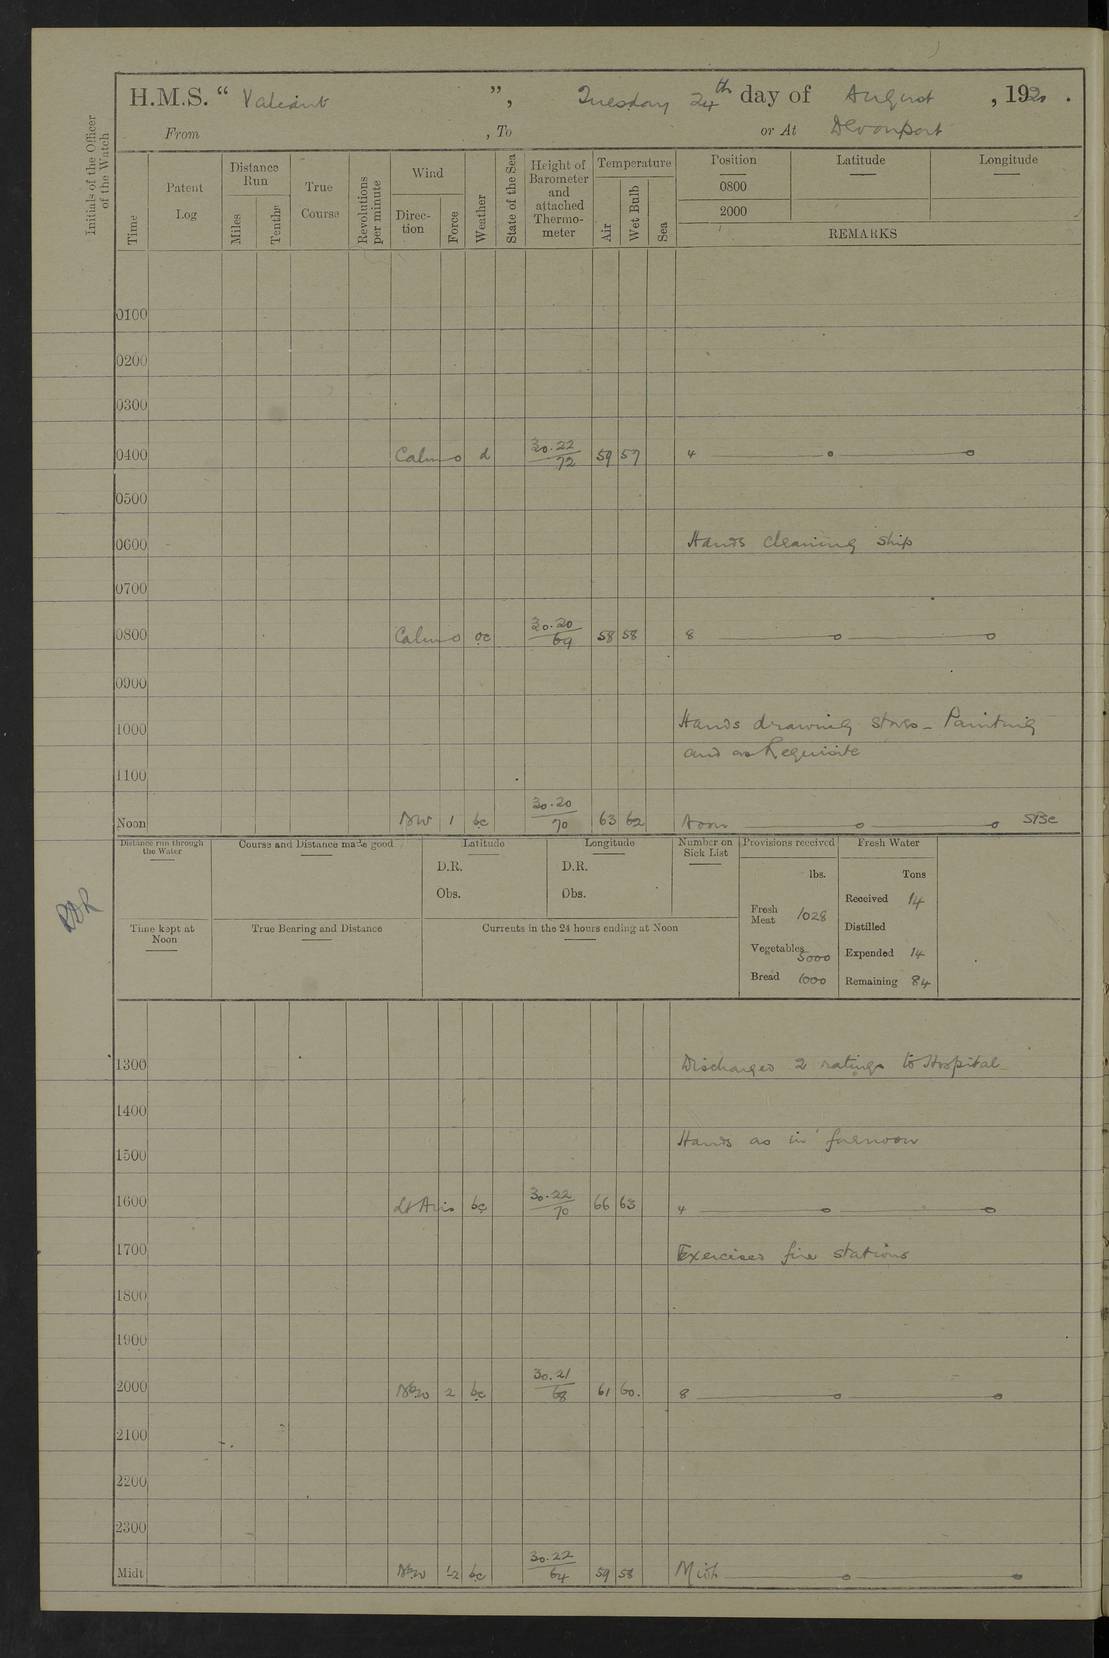 H.M.S. “ Valiant ”, Tuesday 24th day of August , 1920 .
From , To or At Devonport
Initials of the Officer of the Watch
Time
Patent Log
Distance Run
Miles
Tenths
True Course
Revolutions per minute
Wind
Direc-tion
Force
Weather
State of the Sea
Height of Barometer and attached Thermo-meter
Temperature
Air
Wet Bulb
Sea
Position Latitude Longitude
0800
2000
REMARKS
0100
0200
0300
0400 Calm 0 d 30.22/72 59 57 4
0500
0600 Hands cleaning ship
0700
0800 Calm 0 oc 30.20/69 58 58 8
0900
1000 Hands drawing stores - Painting
and as Requisite
1100
Noon NW 1 bc 30.20/70 63 62 Noon
Distance run through the Water
Course and Distance made good
Latitude
D.R.
Obs.
Longitude
D.R.
Obs.
Number on Sick List
Provisions received
lbs.
Fresh Meat 1028
Vegetables 5000
Bread 1000
Fresh Water
Tons
Received 14
Distilled
Expended 14
Remaining 84
Time kept at Noon
True Bearing and Distance
Currents in the 24 hours ending at Noon
1300 Discharged 2 ratings to Hospital
1400
Hands as in forenoon
1500
1600 Lt Airs bc 30.22/70 66 63 4
1700 Exercised fire stations
1800
1900
2000 2 bc 30.21/68 61 60. 8
2100
2200
2300
Midt 1-2 bc 30.22/64 59 58 Midt